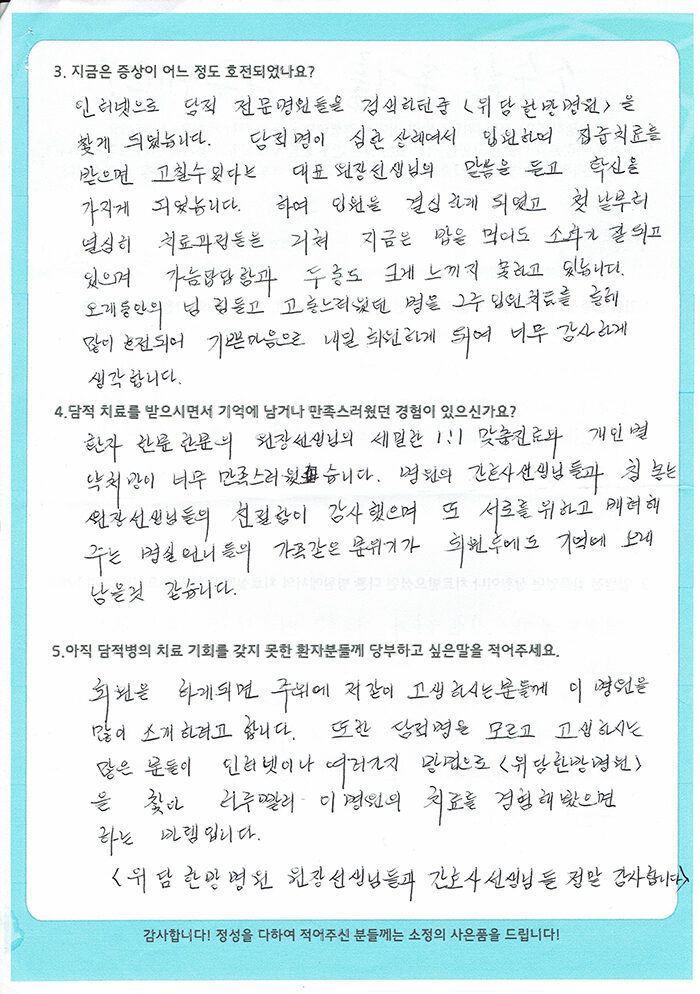 3. 지금은 증상이 어느 정도 호전되었나요?
인터넷으로 담적 전문병원들을 검색하던중 <위담한방병원>을
찾게 되었습니다. 담적병이 심한 상태여서 입원하며 집중치료를
받으면 고칠수있다는 대표원장선생님의 말씀을 듣고 확신을
가지게 되었습니다. 하여 입원을 결심하게 되였고 첫날부터
열심히 치료과정들을 거쳐 지금은 밥을 먹어도 소화가 잘되고
있으며 가슴답답함과 두통도 크게 느끼지 못하고 있습니다.
오래동안의 넘 힘들고 고통스러웠던 병을 그주 입원치료를 통해
많이 호전되어 기쁜마음으로 내일 퇴원하게 되여 너무 감사하게
생각합니다.
4.담적 치료를 받으시면서 기억에 남거나 만족스러웠던 경험이 있으신가요?
환자 한분한분의 원장선생님의 세밀한 1:1 맞춤진료와 개인별
약처방이 너무 만족스러웠습니다. 병원의 간호사선생님들과 침 놓는
원장선생님들의 친절함이 감사했으며 또 서로를 위하고 배려해
주는 병실언니들의 가족같은 분위기가 퇴원후에도 기억에 오래
남을것 같습니다.
5.아직 담적병의 치료 기회를 갖지 못한 환자분들께 당부하고 싶은말을 적어주세요.
퇴원을 하게되면 주위에 저같이 고생하시는분들께 이 병원을
많이 소개하려고 합니다. 또한 담적병을 모르고 고생하시는
많은 분들이 인터넷이나 여러가지 방법으로 <위담한방병원>
을 찾아 하루빨리 이병원의 치료를 경험해봤으면
하는 바램입니다.
<위담한방병원 원장선생님들과 간호사선생님들 정말 감사합니다>
감사합니다! 정성을 다하여 적어주신 분들께는 소정의 사은품을 드립니다!